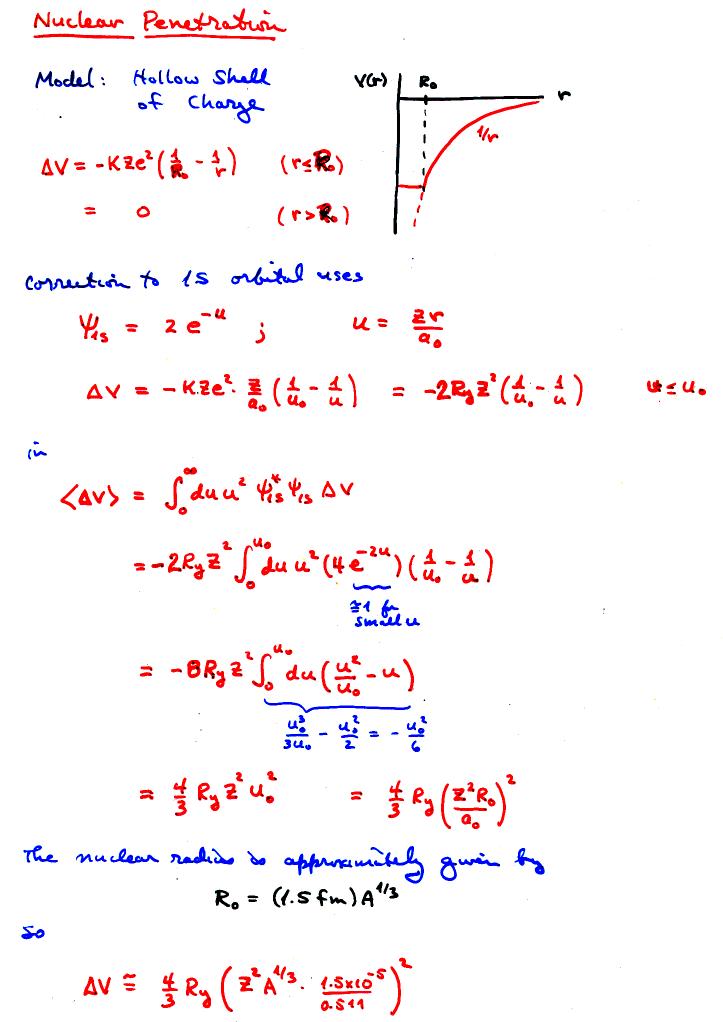 Nuclear Penetration
Model: Hollow Shell
of Charge
V(r) R₀ r
1/r
ΔV = -KZe² (1/R₀ - 1/r) (r≤R₀)
= 0 (r>R₀)
Correction to 1S orbital uses
Ψ₁s = 2 e^-u ; u = Zr/a₀
ΔV = -KZe² · Z/a₀ (1/u₀ - 1/u) = -2RyZ² (1/u₀ - 1/u) u ≤ u₀
in
<ΔV> = ∫₀^∞ du u² Ψ₁s* Ψ₁s ΔV
= -2RyZ² ∫₀^u₀ du u² (4 e^-2u) (1/u₀ - 1/u)
≅1 for
small u
= -8RyZ² ∫₀^u₀ du (u²/u₀ - u)
u₀³/3u₀ - u₀²/2 = - u₀²/6
= 4/3 Ry Z² u₀² = 4/3 Ry (Z²R₀/a₀)²
The nuclear radius is approximately given by
R₀ = (1.5 fm) A^1/3
so
ΔV ≅ 4/3 Ry (Z² A^1/3 · 1.5x10^-5/0.511)²